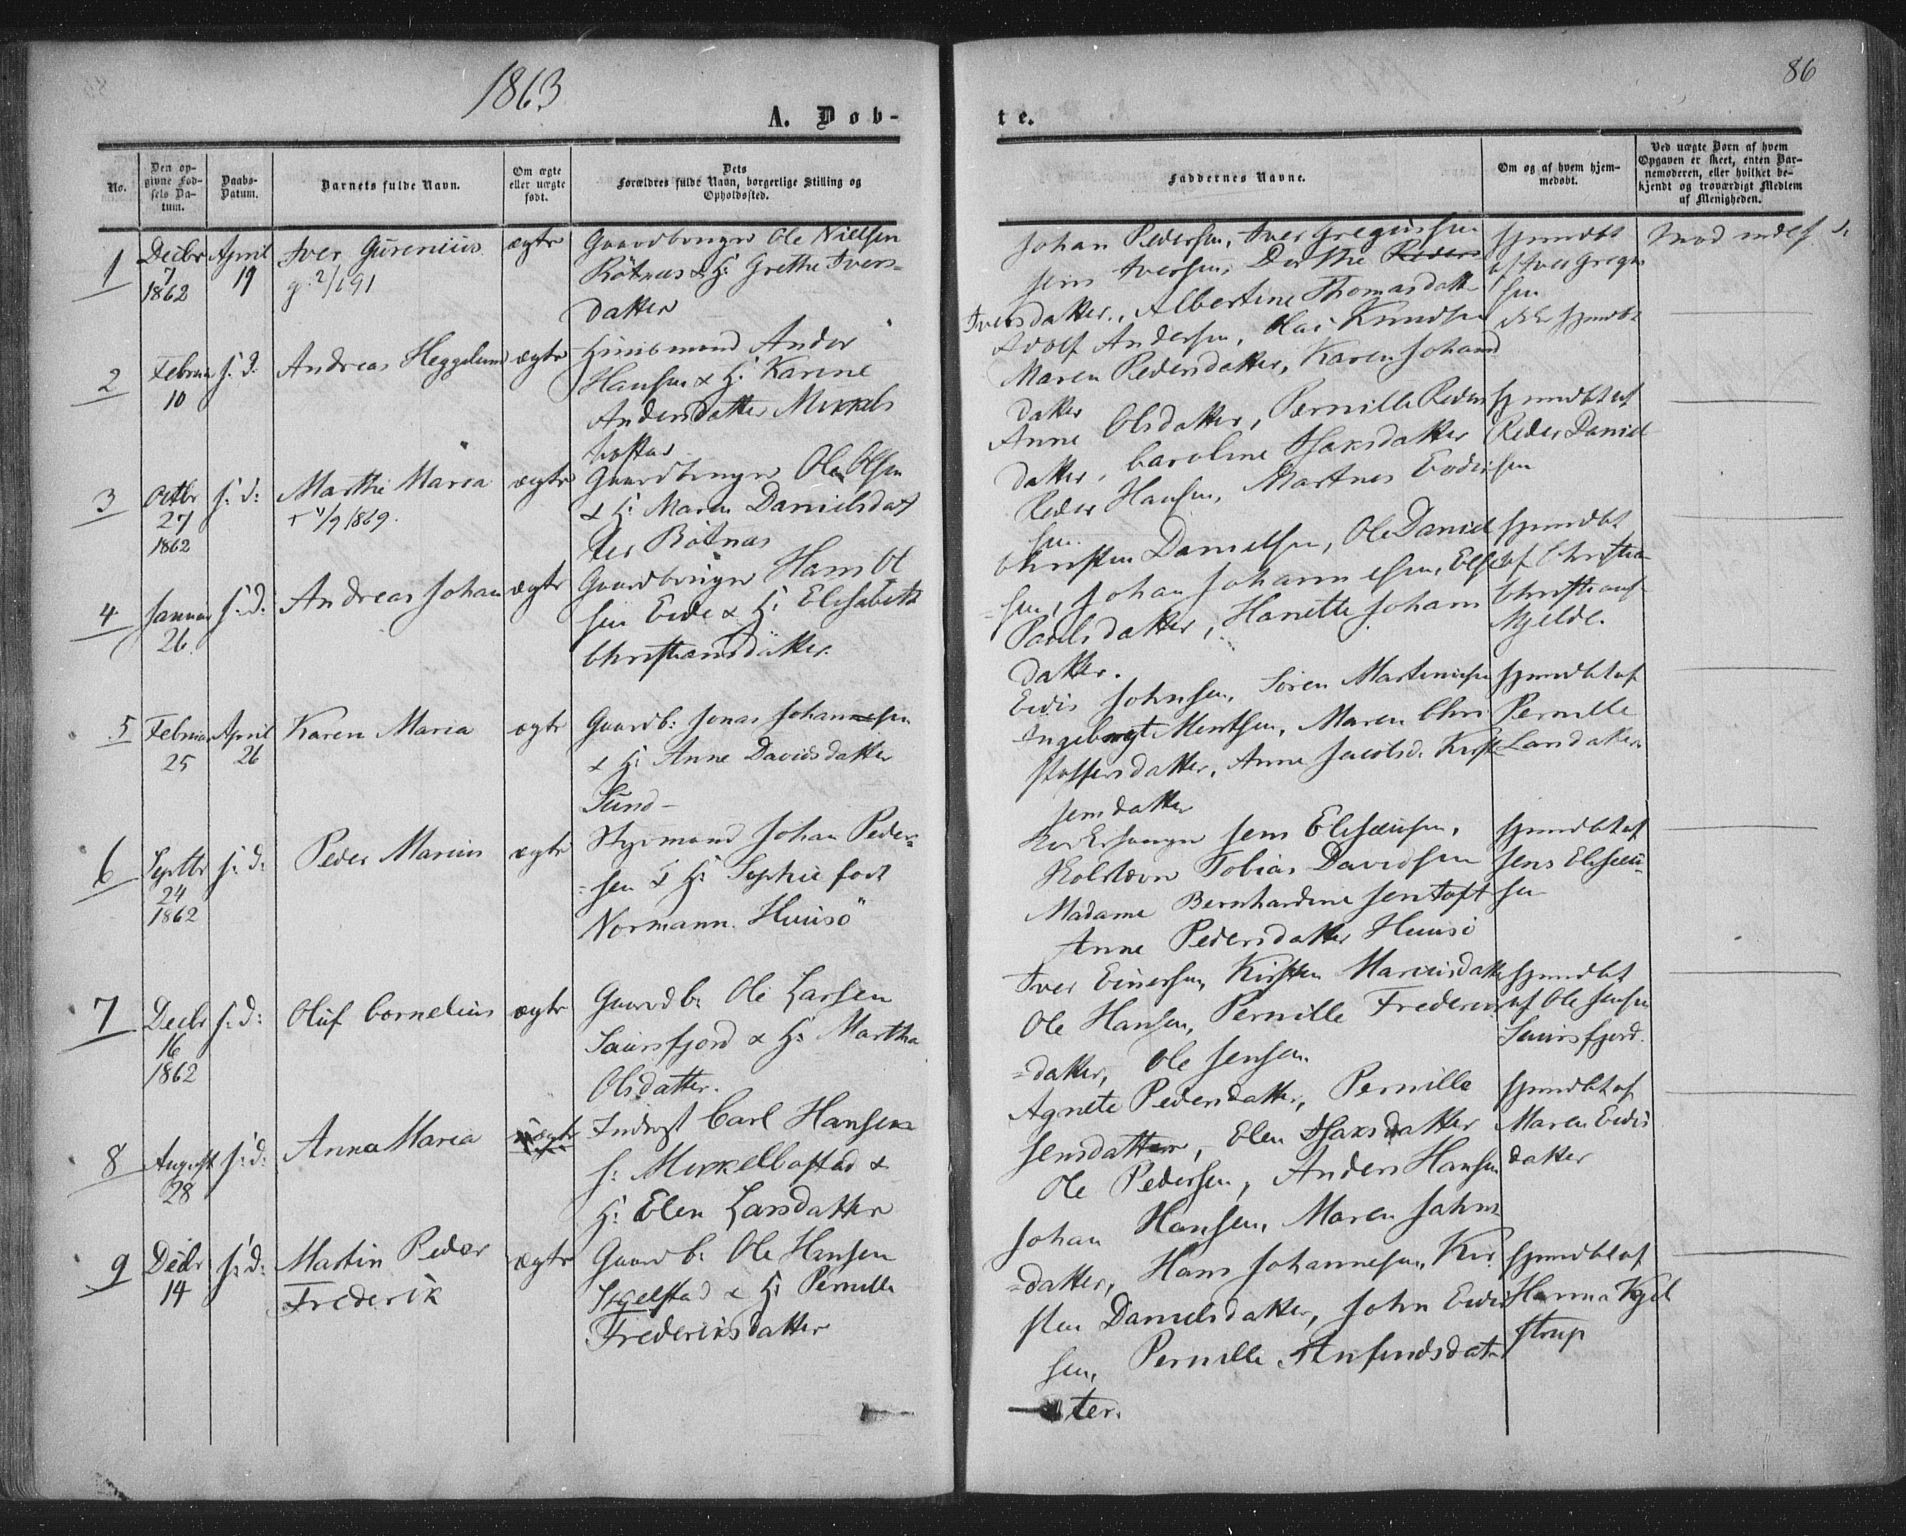 1863
86
A. Døb-
te.
No.
Den op-
givne Fød-
sels Da-
tum.
Daabs-
Datum.
Barnets fulde Navn.
Om ægte
eller uægte
født.
Dets
Forældres fulde Navn, borgerlige Stilling og
Opholdssted.
Faddernes Navne.
Om og af hvem hjem-
medøbt.
Ved uægte Børn af hvem
Opgaven er skeet, enten Bar-
nemoderen, eller hvilket be-
kjendt og troværdigt Medlem
af Menigheden.
1
Decbr
7
1862
April
19
Iver
g. 2/1 91
ægte
Gaardbruger Ole Nielsen
Rötnes & H: Grethe Ivers-
datter
Johan Pedersen, Iver Gregussen
Jens Iversen, Dorthe Peders
Iversdatter, Albertine Thomasdatt
hjemdbt
af Iver Gregus
sen
2
Februar
10
s: d:
Andreas Heggelund
ægte
Huusmand Ander
Hansen & H: Karine
Andersdatter Mikkels
bostad
Adolf Andersen, Knudsen
Maren Pedersdatter, Karen Johans
datter
ikke hjemdbt
3
Octbr
27
1862
s: d:
Marthe Maria
+ 1/9 1869.
ægte
Gaardbruger Ole Olsen
& H: Maren Danielsdat
ter Rötnes
Anne Olsdatter, Pernille Peders
datter, Caroline Isaksdatter
Peder Hansen, Martnus
sen.
hjemdbt af
Peder Daniel
sen
4
Januar
26.
s: d:
Andreas Johan
ægte
Gaardbruger Hans Ol
sen Eide & H: Elisabeth
Christiansdatter.
Christen Danielsen, Ole Daniel
sen, Johan Johannesen, Else
Paulsdatter, Hanette Johans
datter.
hjemdbt
af Christian
Christians-
Kjelde.
5
Februar
25
April
26
Karen Maria
ægte
Gaardb: Jonas Johannesen
& H: Anne Davidsdatter
Sund-
Johnsen, Sören Martinusen
Ingebrigt Mentsen, Maren Chri
stoffersdatter, Anne Jacobsd.
Jensdatter
hjemdbt af
Pernille
Landaker
6
Septbr
24
1862
s: d:
Peder Marius
ægte
Styrmand Johan Peder-
sen & H: Sophie født
Normann. Huusö
Kirkesanger Jens Elisæusen,
Tobias Davidsen
Madame Bernhardine Jentoft
Anne Pedersdatter Huusö
hjemdbt af
Jens Elisæu-
sen
7
Decbr
16
1862
s: d:
Oluf Cornelius
ægte
Gaardb: Ole Larsen
Saursfjord & H: Martha
Olsdatter.
Iver Einersen, Kirsten Mariusdatter
Ole Hansen, Pernille Frederiks
datter, Ole Jensen
hjemdbt
af Ole Jensen
Saursfjord.
8
August
28
s: d:
Anna Maria
uægte
Indrgst Carl Hansen
s: Mikkelbostad &
H: Elen Larsdatter
Agnete Pedersdatter, Pernille
Jensdatter, Elen Isaksdatter
Ole Pedersen, Anders Hansen
Johan Hansen, Maren Johns
datter,
hjemdbt af
Maren Evers
datter
9
Decbr
14
s: d:
Martin Peder
Frederik
ægte
Gaardb: Ole Hansen
& H: Pernille
Frederiksdatter
Hans Johannesen, Kir
sten Danielsdatter, John
sen, Pernille Anfindsdat-
ter.
hjemdbt af
Hanna Kjel
strup